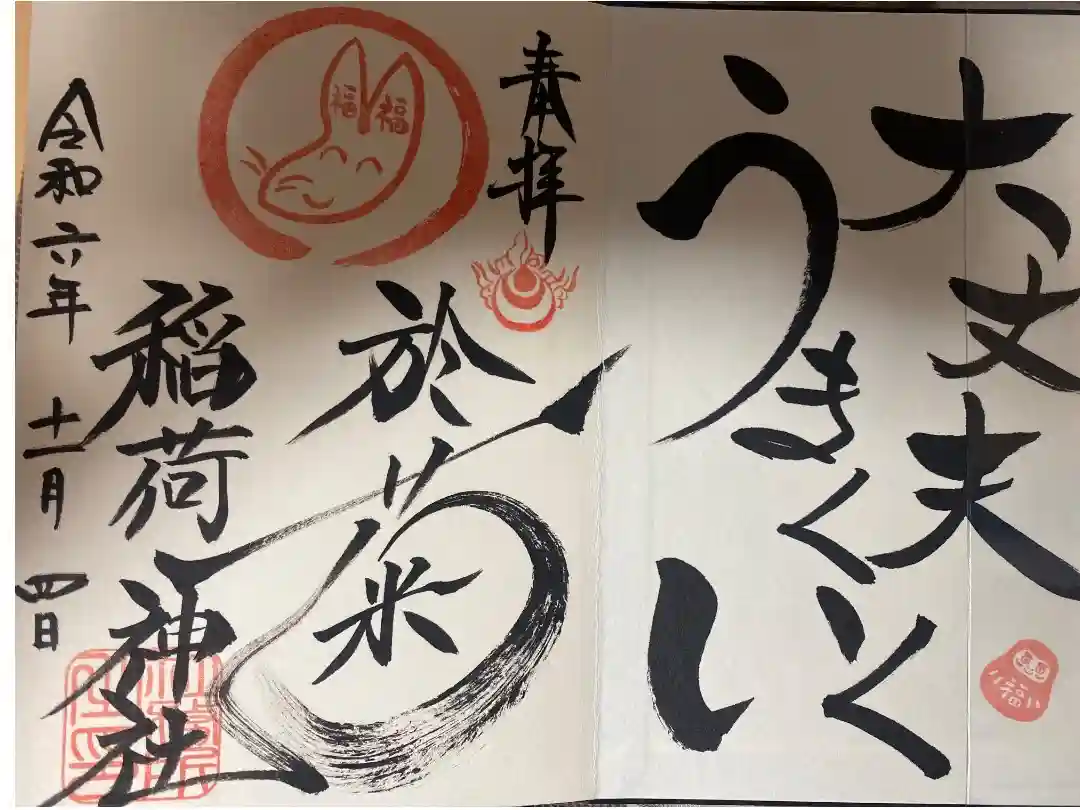 大丈夫
うまくいく
奉拝
於菊
稲荷神社
令和六年 十一月 四日
福 福
福